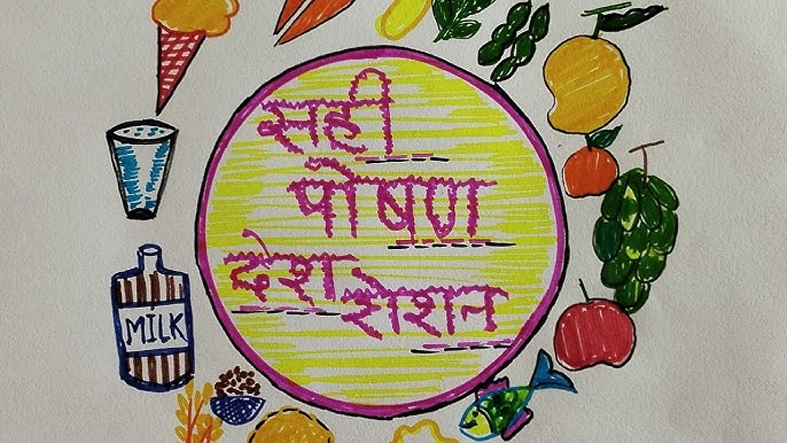 सही
पोषण
देश
रोशन
MILK